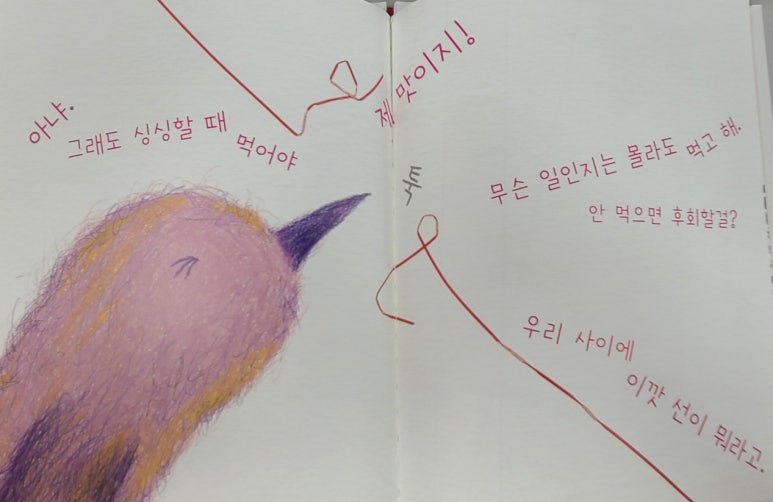 아냐.
그래도 싱싱할 때
먹어야
제 맛이지!
무슨 일인지는 몰라도 먹고 해.
안 먹으면 후회할걸?
우리 사이에
이깟 선이 뭐라고.